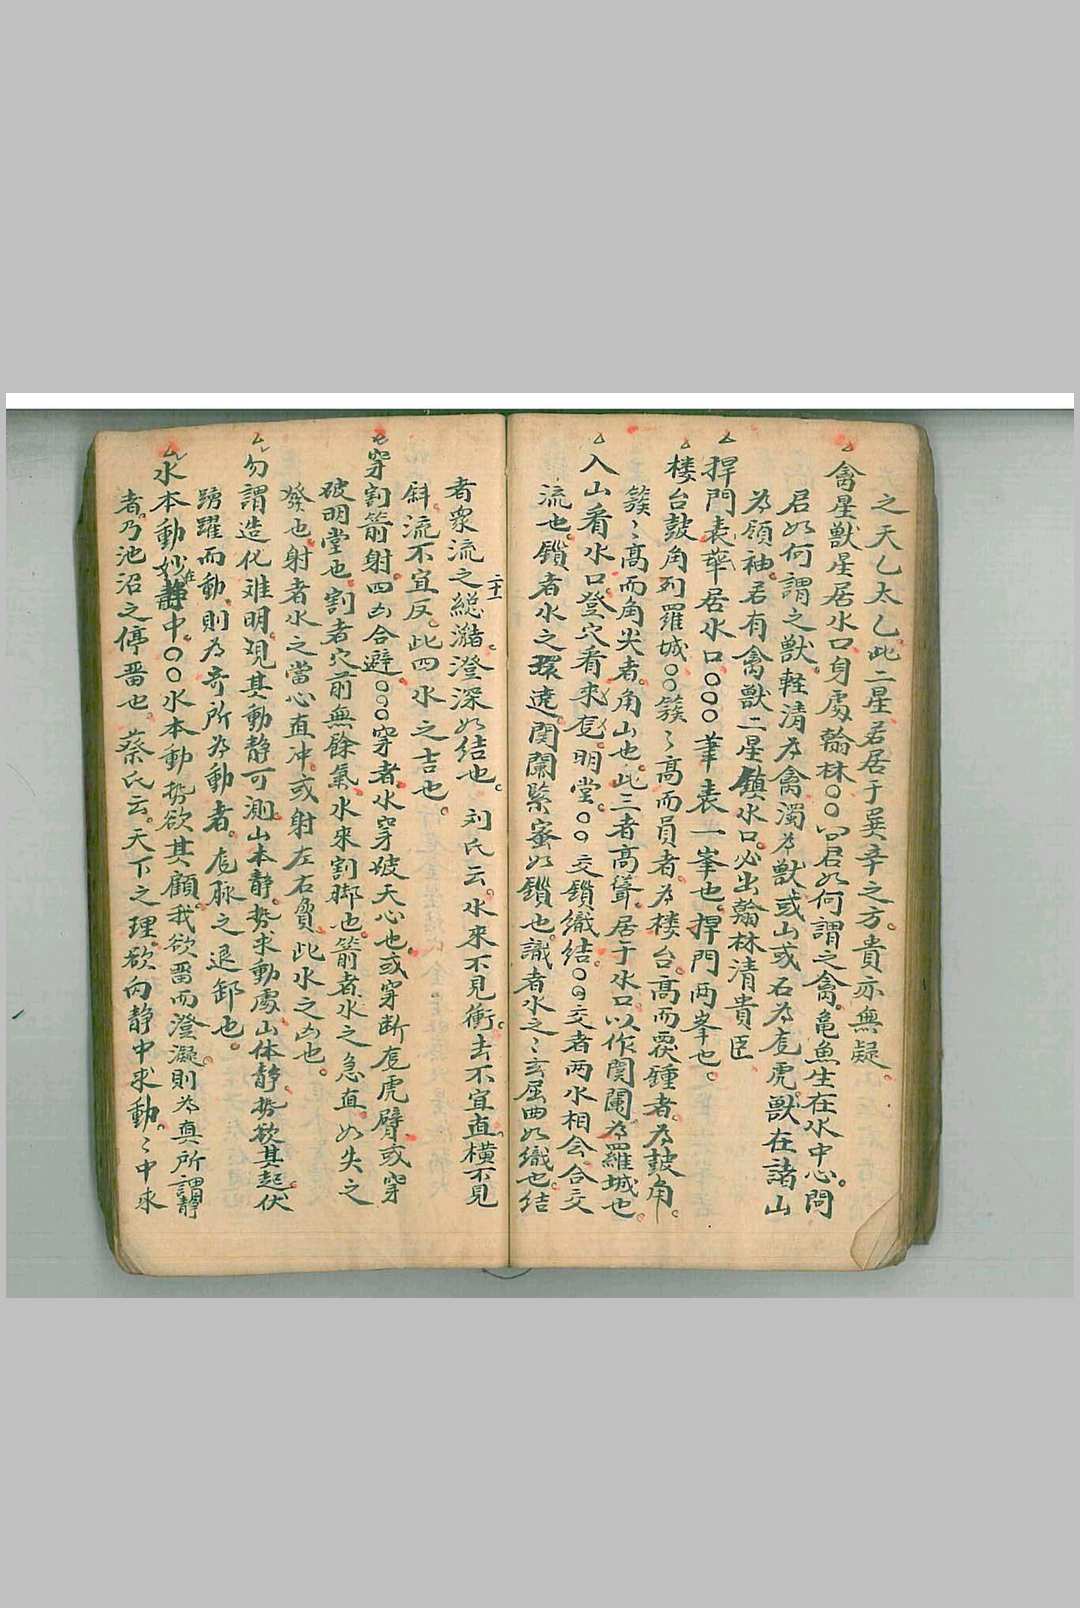 之天乙太乙。此二星若居于巽辛之方。貴亦無疑。
禽星獸星居水口身處翰林〇〇以君如何謂之禽。龜魚生在水中心。問
君如何謂之獸。軽清為禽濁為獸或山或石為龙虎。獸在諸山
為領袖。若有禽獸二星鎮水口。必出翰林清貴臣
捍門表華居水口〇〇〇華表一峯也。捍門両峯也。
楼台鼓角列羅城〇〇簇〻高而員者。為楼台。高而覆鍾者。為鼓角。
簇〻高而角尖者。角山也。此三者高聳。居于水口以作関闌為羅城也。
入山看水口。登穴看来龙。明堂。〇〇交鎖織結。〇〇交者両水相会。合交
流也。鎖者水之環遶。関闌緊蜜如鎖也。識者水之〻玄屈曲如織也。結
者衆流之總瀦。澄深如結也。刘氏云。水来不見衝。去不宜直。横不見
斜。流不宜反。此四水之吉也。
穿割箭射。四凶合避。〇〇〇穿者。水穿破天心也。或穿断龙虎臂。或穿
破明堂也。割者穴前無餘氣。水來割脚也。箭者水之急直。如失之
發也。射者水之當心直冲。或射左右負。此水之凶也。
勿謂造化难明。覌其動静可測。山本静。势求動處。山体静。势欲其起伏
踴躍而動。則為奇所為動者。龙脉之退卸也。
水本動妙在静中。〇〇水本動。势欲其顧。我欲畱而澄凝則為真所謂静
者。乃池沼之停畱也。蔡氏云。天下之理。欲向静中求動。〻中求